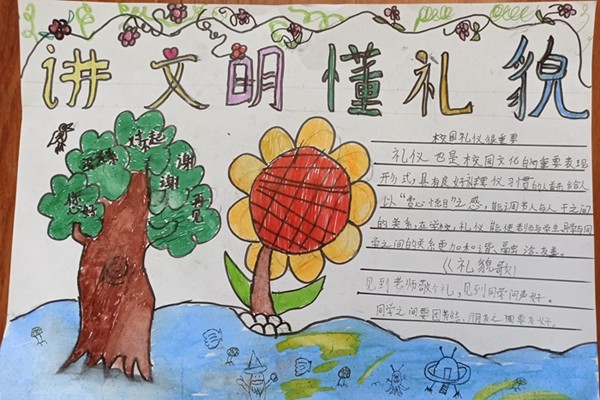 讲文明懂礼貌
没关系
对不起
谢谢
您好
再见
校园礼仪很重要
礼仪也是校园文化的重要表现
形式,具有良好礼仪习惯的人能给人
以“赏心悦目”之感,能调节人与人之间
的关系,在学校,礼仪能使老师与学生、同学与同
学之间的关系更加和谐、融洽、友善。
《礼貌歌》
见到老师敬个礼,见到同学问声好。
同学之间要团结,朋友之间要友好。